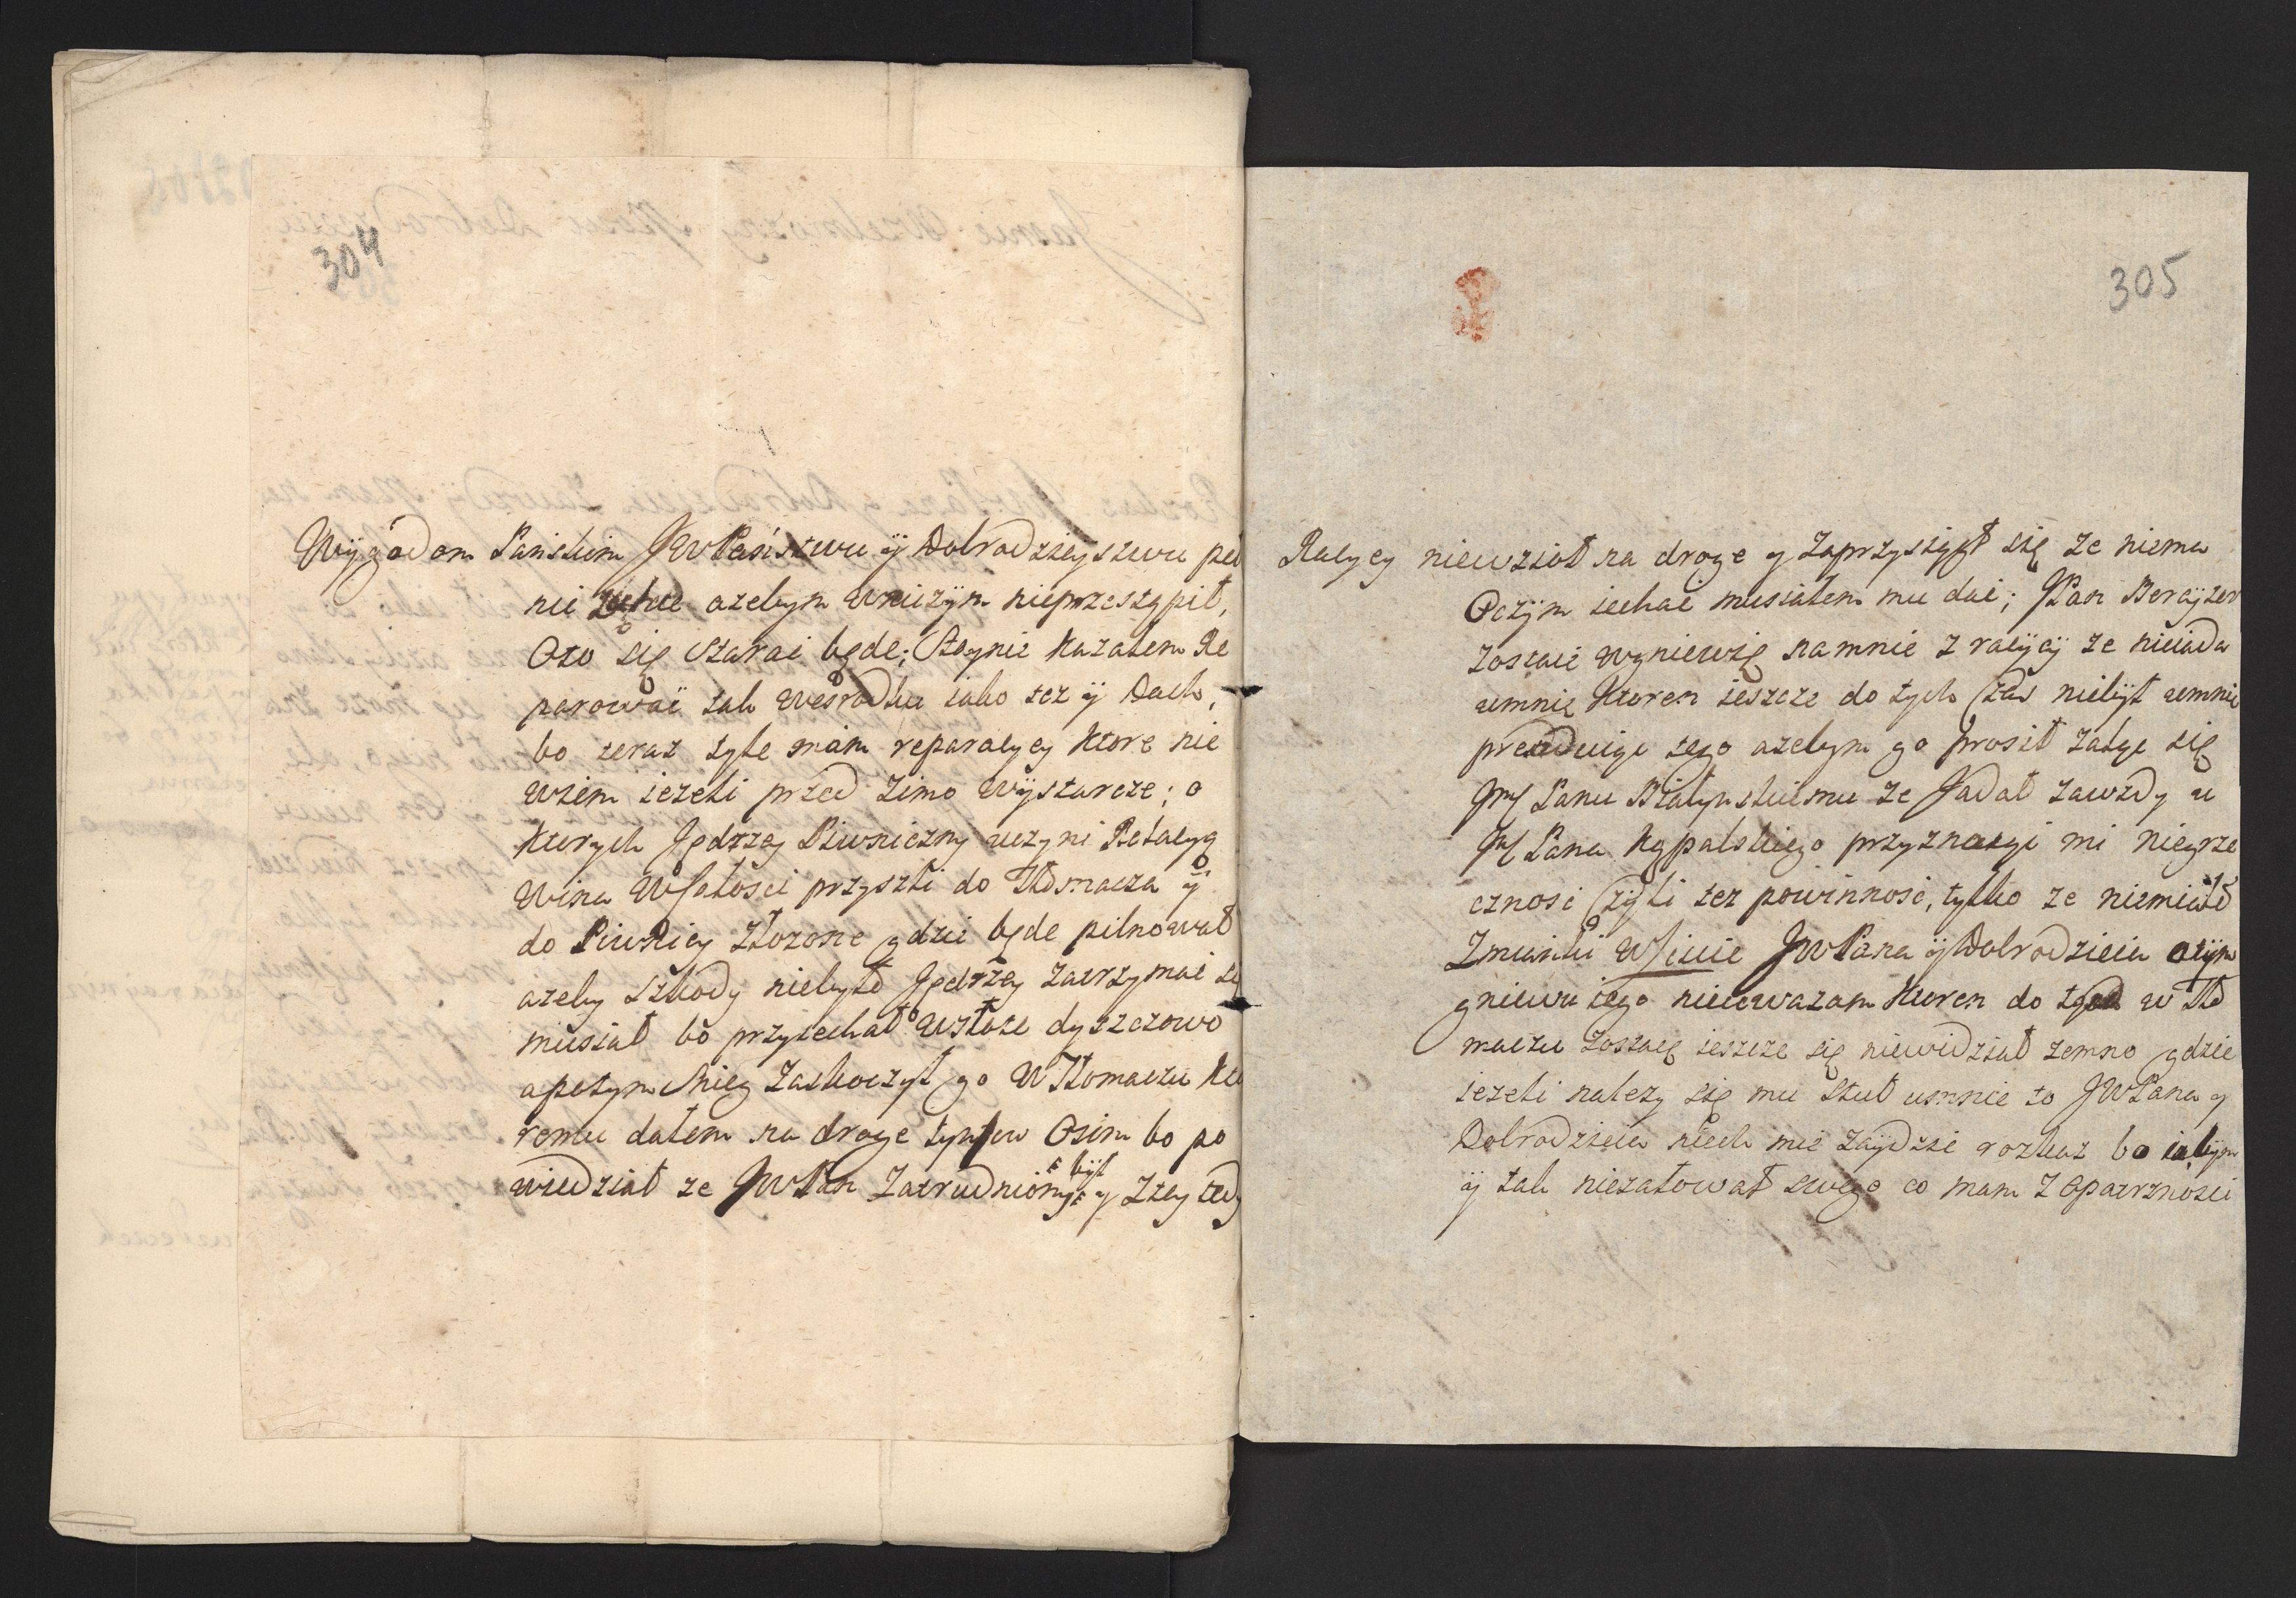 304
Wÿgodom Panskim JWPaństwu ÿ Dobrodzieystwu peł
nie azebym wniczÿm nieprzestąpił,
Oto się starac będe; Staynie kazałem Re
parować tak wesrodku iako tez ÿ Dach,
bo teraz tyle mam reparacyey ktore nie
wiem iezeli przed zimo wÿstarcze; o
kturych Jędrzey Piwniczny uczyni Relacyą
Wina Wcałosci przyszli do Tłomacza ÿ
do Piwnicy złozone gdzie będe pilnował
azeby szkody niebyło Jędrzey zatrzymac se
musiał bo przyiechał wzłoze dyszczowo
apotym snieg zaskoczył go w Tłomaczu ktu
remu dałem na droge tynfow Osim bo po
wiedział ze JWPan Zatrudniony był y Ztey tedy
305
Racyey niewzioł na droge y zaprzysiągł się ze niema
Oczÿm iechać musiałem mu dać; JPan Beraÿter
zostaie wgniewię namnie z racÿeÿ ze nieiada
umnię ktoren ieszcze do tych czas niebÿł umnie
pretenduiąc tego azebym go prosił zaląc się
Jmć Panu Białynskiemu ze Jadał zawzdy u
Jmć Pana Kępalskiego przyznaiąc mi niegrze
cznosc czyli tez powinnosc, tylko ze niemiało
Zmianki Wliscie JWPana ÿ Dobrodzieia oczÿm
gniewu iego nieuwazam kturen do tąd w Tło
maczu zostaię ieszcze się niewidział zemno gdzie
iezeli nalezy się mu stuł umnie to JWPana y
Dobrodzieia niech mie zaÿdzie rozkaz bo iabÿm
ÿ tak niezałował swego co mam z Opatrznosci